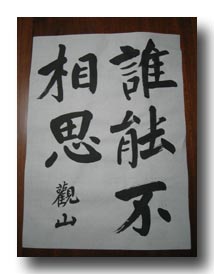 誰能不
相思
觀山